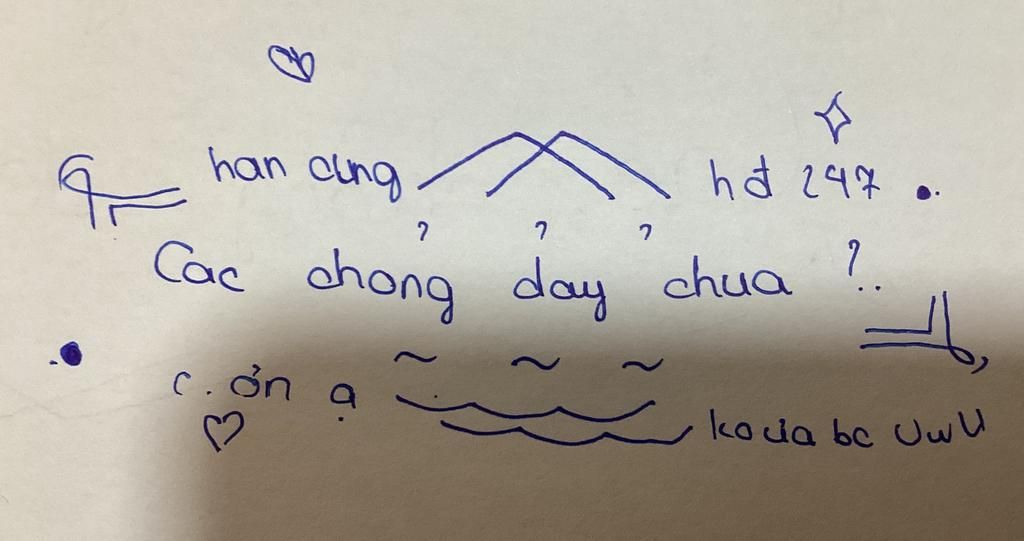 han cưng hđ 247
? ? ?
Cac chong day chua ?..
c. ơn ạ
~ ~ ~
ko ưa bc UwU